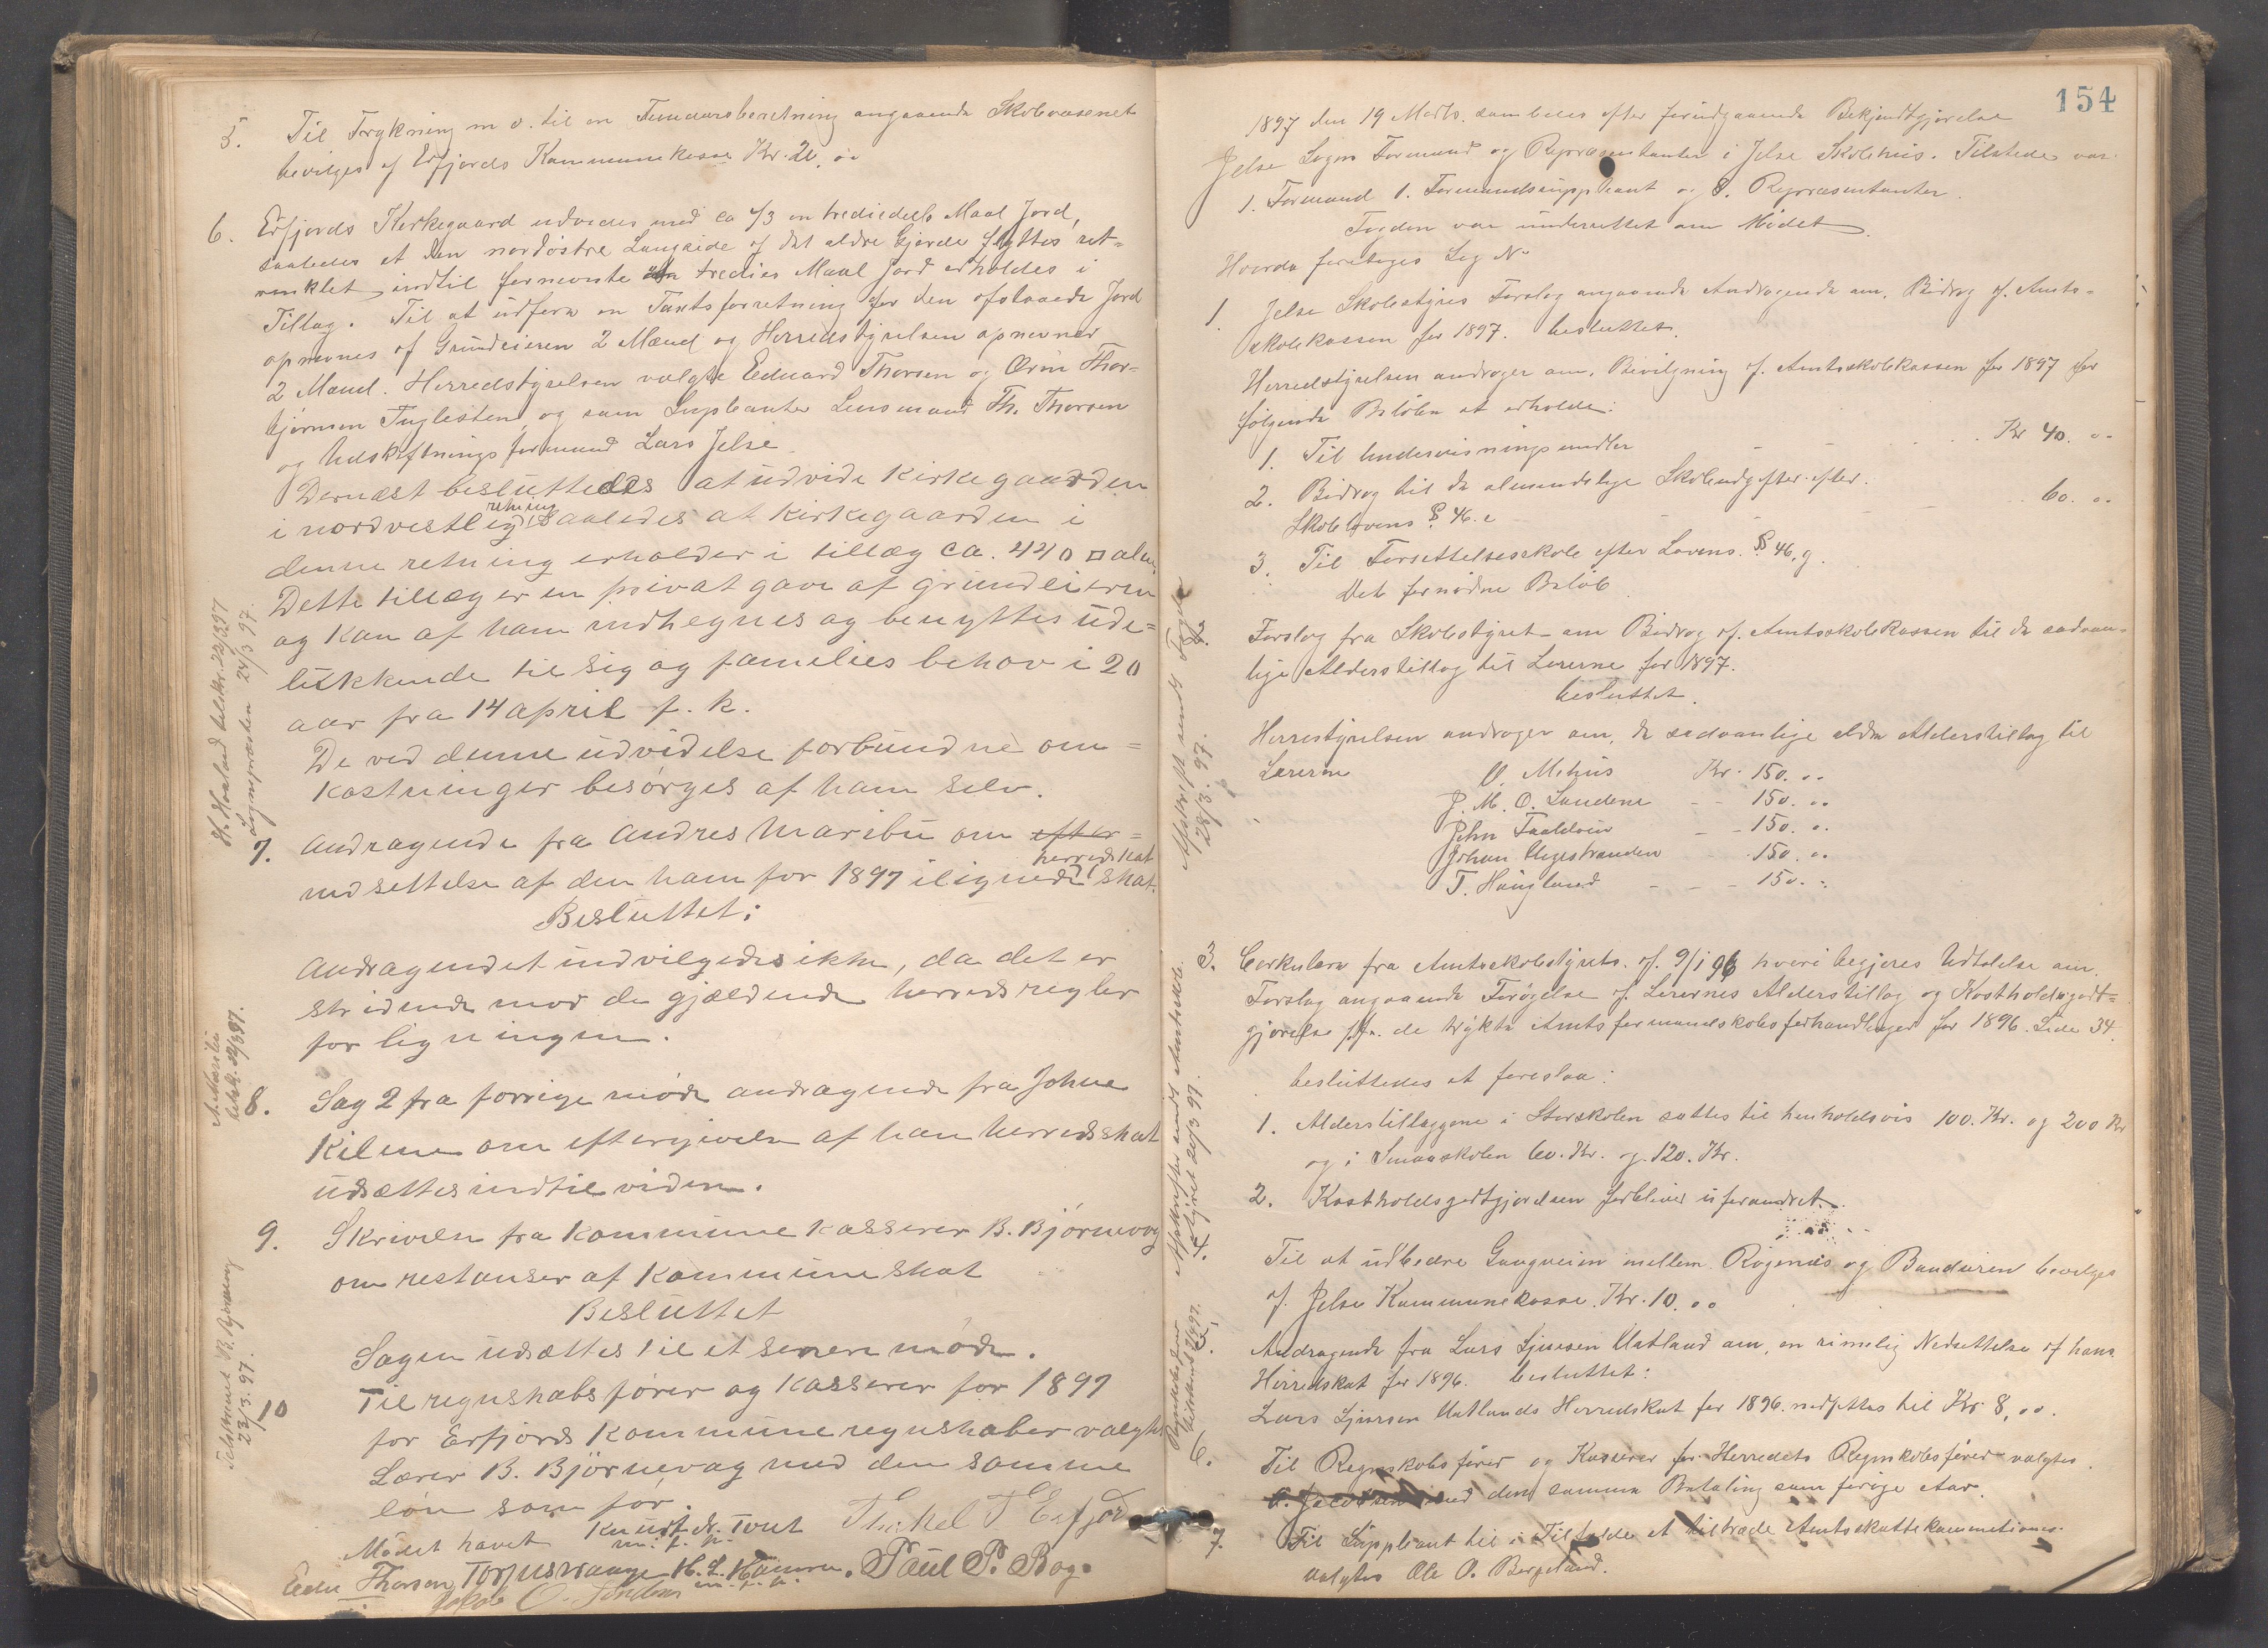 5. Til Trykning m v. til en Femaarsberetning angaaende Skolevæsenet
bevilges af Erfjords Kommunekasse Kr. 20. oo
6. Erfjords Kirkegaard udvides med ca 1/3 en trediedels Maal Jord,
saaledes at den nordöstre Langside af det eldre Gjerde flyttes ret-
vinklet indtil fornevnte tredies Maal Jord erholdes i
Tillæg. Til at udföre en Taxtsforretning for den afstaaede Jord
opnevnes af Grundeieren 2 Mænd og Herredstyrelsen opnevner
2 Mænd. Herredstyrelsen valgte Eduard Thorsen og Örin Thor-
björnsen Fuglesten, og som Supleanter Lensmand Th. Thorsen
og Udskiftningsformand Lars Jelse.
Dernæst besluttedes at udvide Kirkegaarden
retning
i nordvestlig saaledes at Kirkegaarden i
denne retning erholder i tillæg ca. 440 □ alen.
Dette tillæg er en privat gave af grundeieren
og kan af ham indhegnes og benyttes ude-
lukkende til sig og families behov i 20
aar fra 14 april f. k.
De ved denne udvidelse forbundne om-
kostninger besørges af ham selv.
7. Andragende fra Andres Maribu om efter-
herredskat
nedsettelse af den ham for 1897 ilignede skat.
Besluttet:
Andragendet indvilgedes ikke, da det er
stridende mod de gjældende herreds regler
for ligningen.
8. Sag 2 fra forrige møde andragende fra Johne
Kilene om eftergivelse af han herredsskat
udsættes indtil viden.
9. Skrivelse fra Kommunekasserer B. Bjørnevaag
om restanser af Kommuneskat
Besluttet
Sagen udsættes til et senere møde.
10 Til regnskabsfører og Kasserer for 1897
for Erfjords Kommuneregnskaber valgtes
Lærer B. Bjørnevag med den samme
løn som før.
Mødet hævet Knudt Dr. Tout Thorkel T Erfjord
m. f. p.
Edu Thorsen, Torjus Waage H. L. Hamre. Paul P. Bog.
m. f. p.
Jakob O.
H. Hovland tilskr. 22/3 97
Sognepresten 24/3 97.
A. Maribu
tilsk. 22/3 97.
Tilstillet B. Bjørnevag
22/3. 97.
154
1897 den 19 Marts. samledes efter forudgaaende Bekjendtgjørelse
Jelse Sogns Formænd og Representanter i Jelse Skolehus. Tilstede var
1. Formand 1. Formandssuppleant og 8. Repræsentanter.
Fogden var underrettet om Mödet
Hvorda foretoges Sag No
1. Jelse Skolestyres Forslag angaaende Andragende om, Bidrag af Amts-
skolekassen for 1897. besluttet.
Herredstyrelsen andrager om, Bevilgning af Amtsskolekassen for 1897 for
fölgende Belöb at erholde:
1. Til Undervisningsmidler - - - Kr 40. oo
2. Bidrag til de almindelige Skoleudgifter efter
Skolelovens § 46. e - - - 60. oo
3. Til Forsettelsesskole efter Lovens. § 46. g.
Det fornödne Belöb.
Forslag fra Skolestyret om Bidrag af Amtsskolekassen til de sedvan-
lige Alderstillæg til Lererne for 1897.
besluttet.
Herrestyrelsen andrager om, de sedvanlige eldre Alderstillæg til
Lererne O. Mehus Kr. 150. oo
J. M. O. Sandene - - 150. oo
John Faaldvin - - 150. o.
Johan Ulgestranden - 150. oo
T. Haugland - - - 150. -
3. Cerkulære fra Amtsskolestyrets. af. 9/1 96 hvori begjeres Udtalelse om.
Forslag angaaende Forögelse af Lerernes Alderstillæg og Kostholdsgodt-
gjörelse jfr. de trykte Amtsformandskabsforhandlinger for 1896. Side 34.
besluttedes at foreslaa:
1. Alderstillæggene i Storskolen sættes til henholdsvis 100. Kr. og 200 Kr
og i Smaaskolen 60. Kr. og 120. Kr.
2. Kostholdsgodtgjörelsen forbliver uforandret.
4. Til at udbedre Gangveien mellem Rögenæs og Banduren bevilges
af. Jelse Kommunekasse. Kr. 10. oo
5. Andragende fra Lars Sjursen Uatland om, en rimelig Nedsettelse af hans
Herredskat for 1896. besluttet:
Lars Sjursen Uatlands Herredskat for 1896. nedsettes til Kr 8, oo.
6. Til Regnskabsförer og Kasserer for Herredets Regnskabsförer valgtes.
med den samme Betaling som forige Aar.
7. Til Suppleant til i Tilfelde at tiltræde Amtsskattekommitionen
valgtes Ole O. Bergeland.
Afskrift sendt Fogde
23/3. 97.
Afskrifter sendt Amtsskole-
styret 20/3 97.